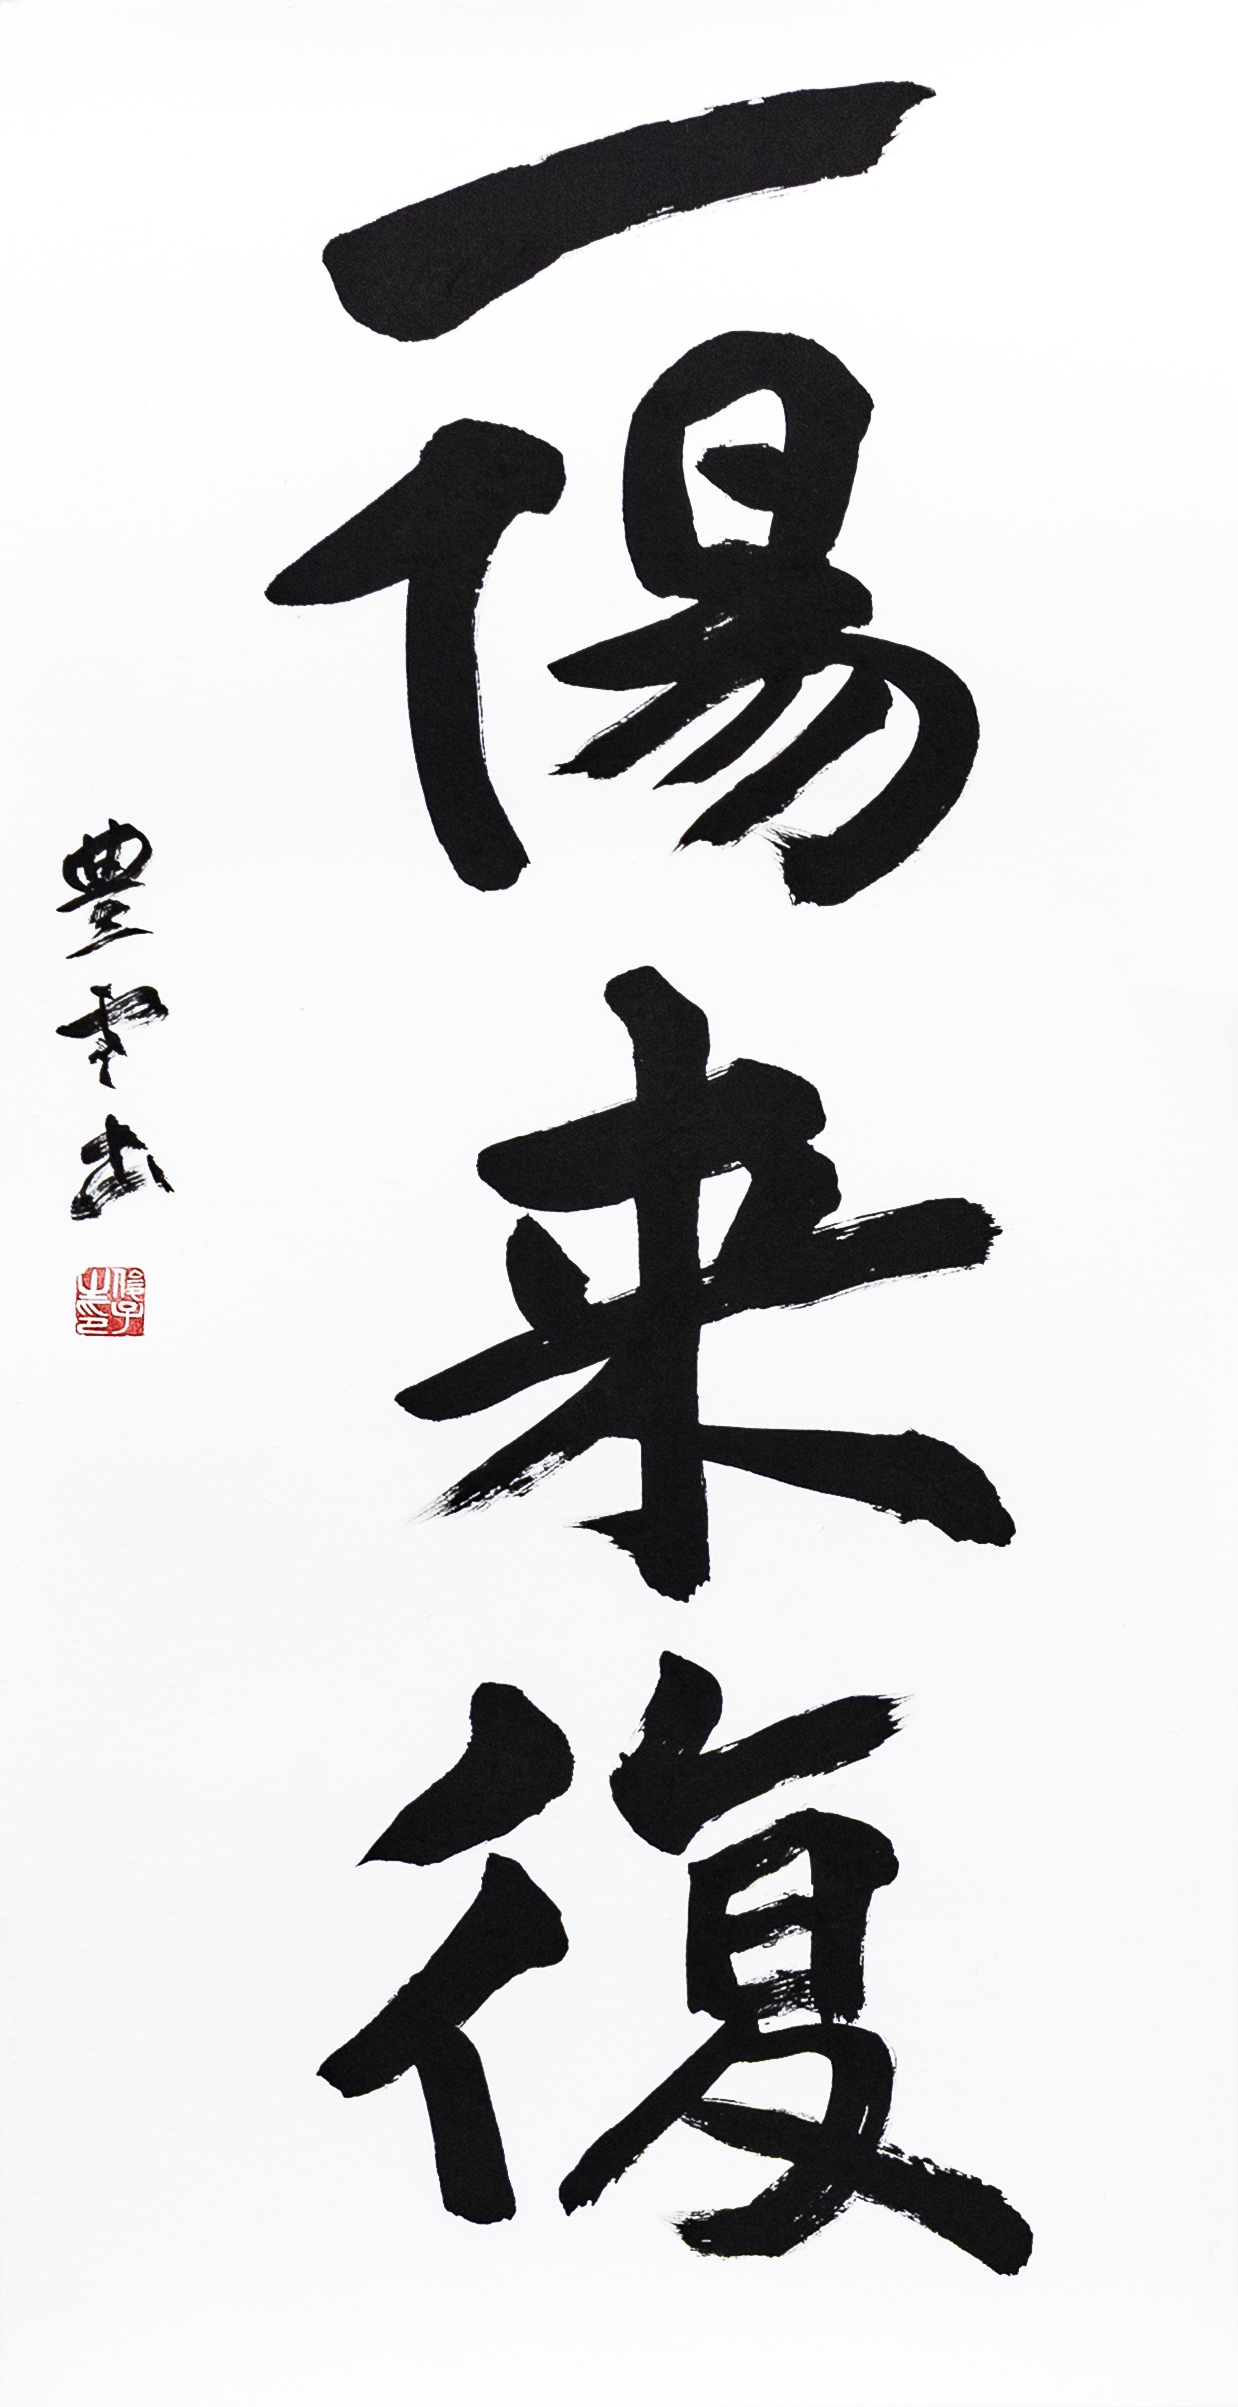 一陽来復
豊雲書